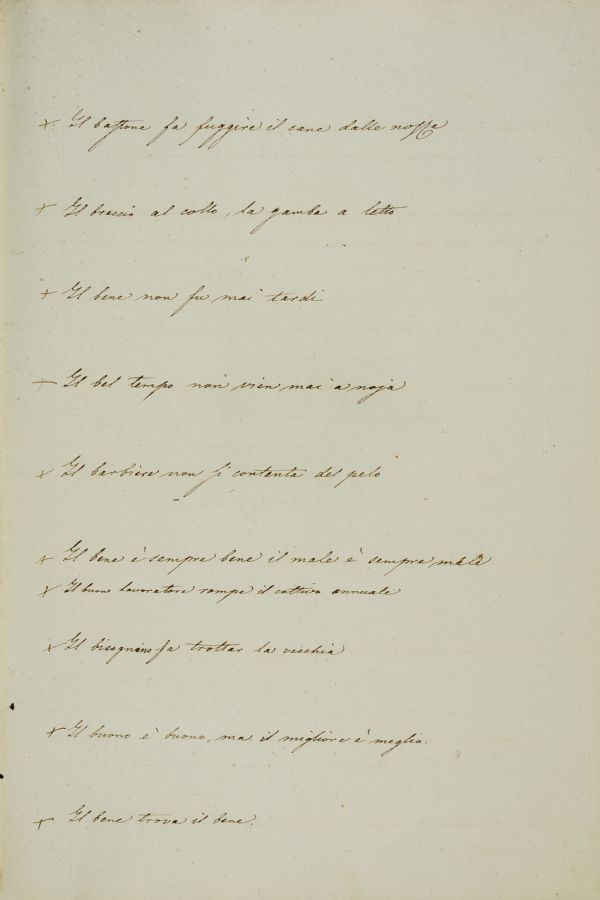 Il bastone fa fuggire il cane dalle nosse
Il braccio al collo, la gamba a letto
Il bene non fu mai tardi
Il bel tempo non vien mai a noja
Il barbiere non si contenta del pelo
Il bene è sempre bene il male è sempre male
Il buon lavoratore rompe il cattivo annuale
Il bisognino fa trottar la vecchia
Il buono è buono, ma il migliore è meglio.
Il bene trova il bene.